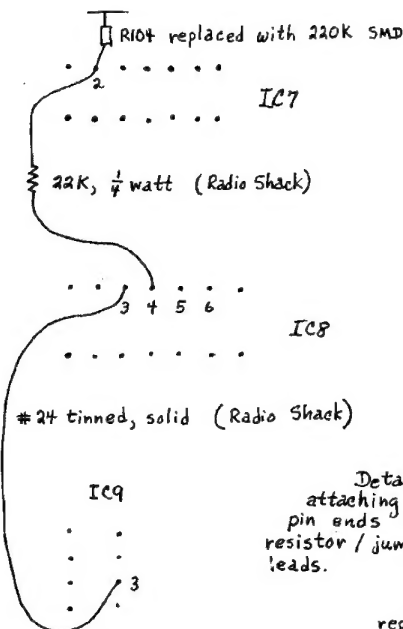 R104 replaced with 220K SMD
2
IC7
22K, 1/4 watt (Radio Shack)
3 4 5 6
IC8
#24 tinned, solid (Radio Shack)
IC9
3
Deta
attaching
pin ends
resistor / jum
leads.
rec